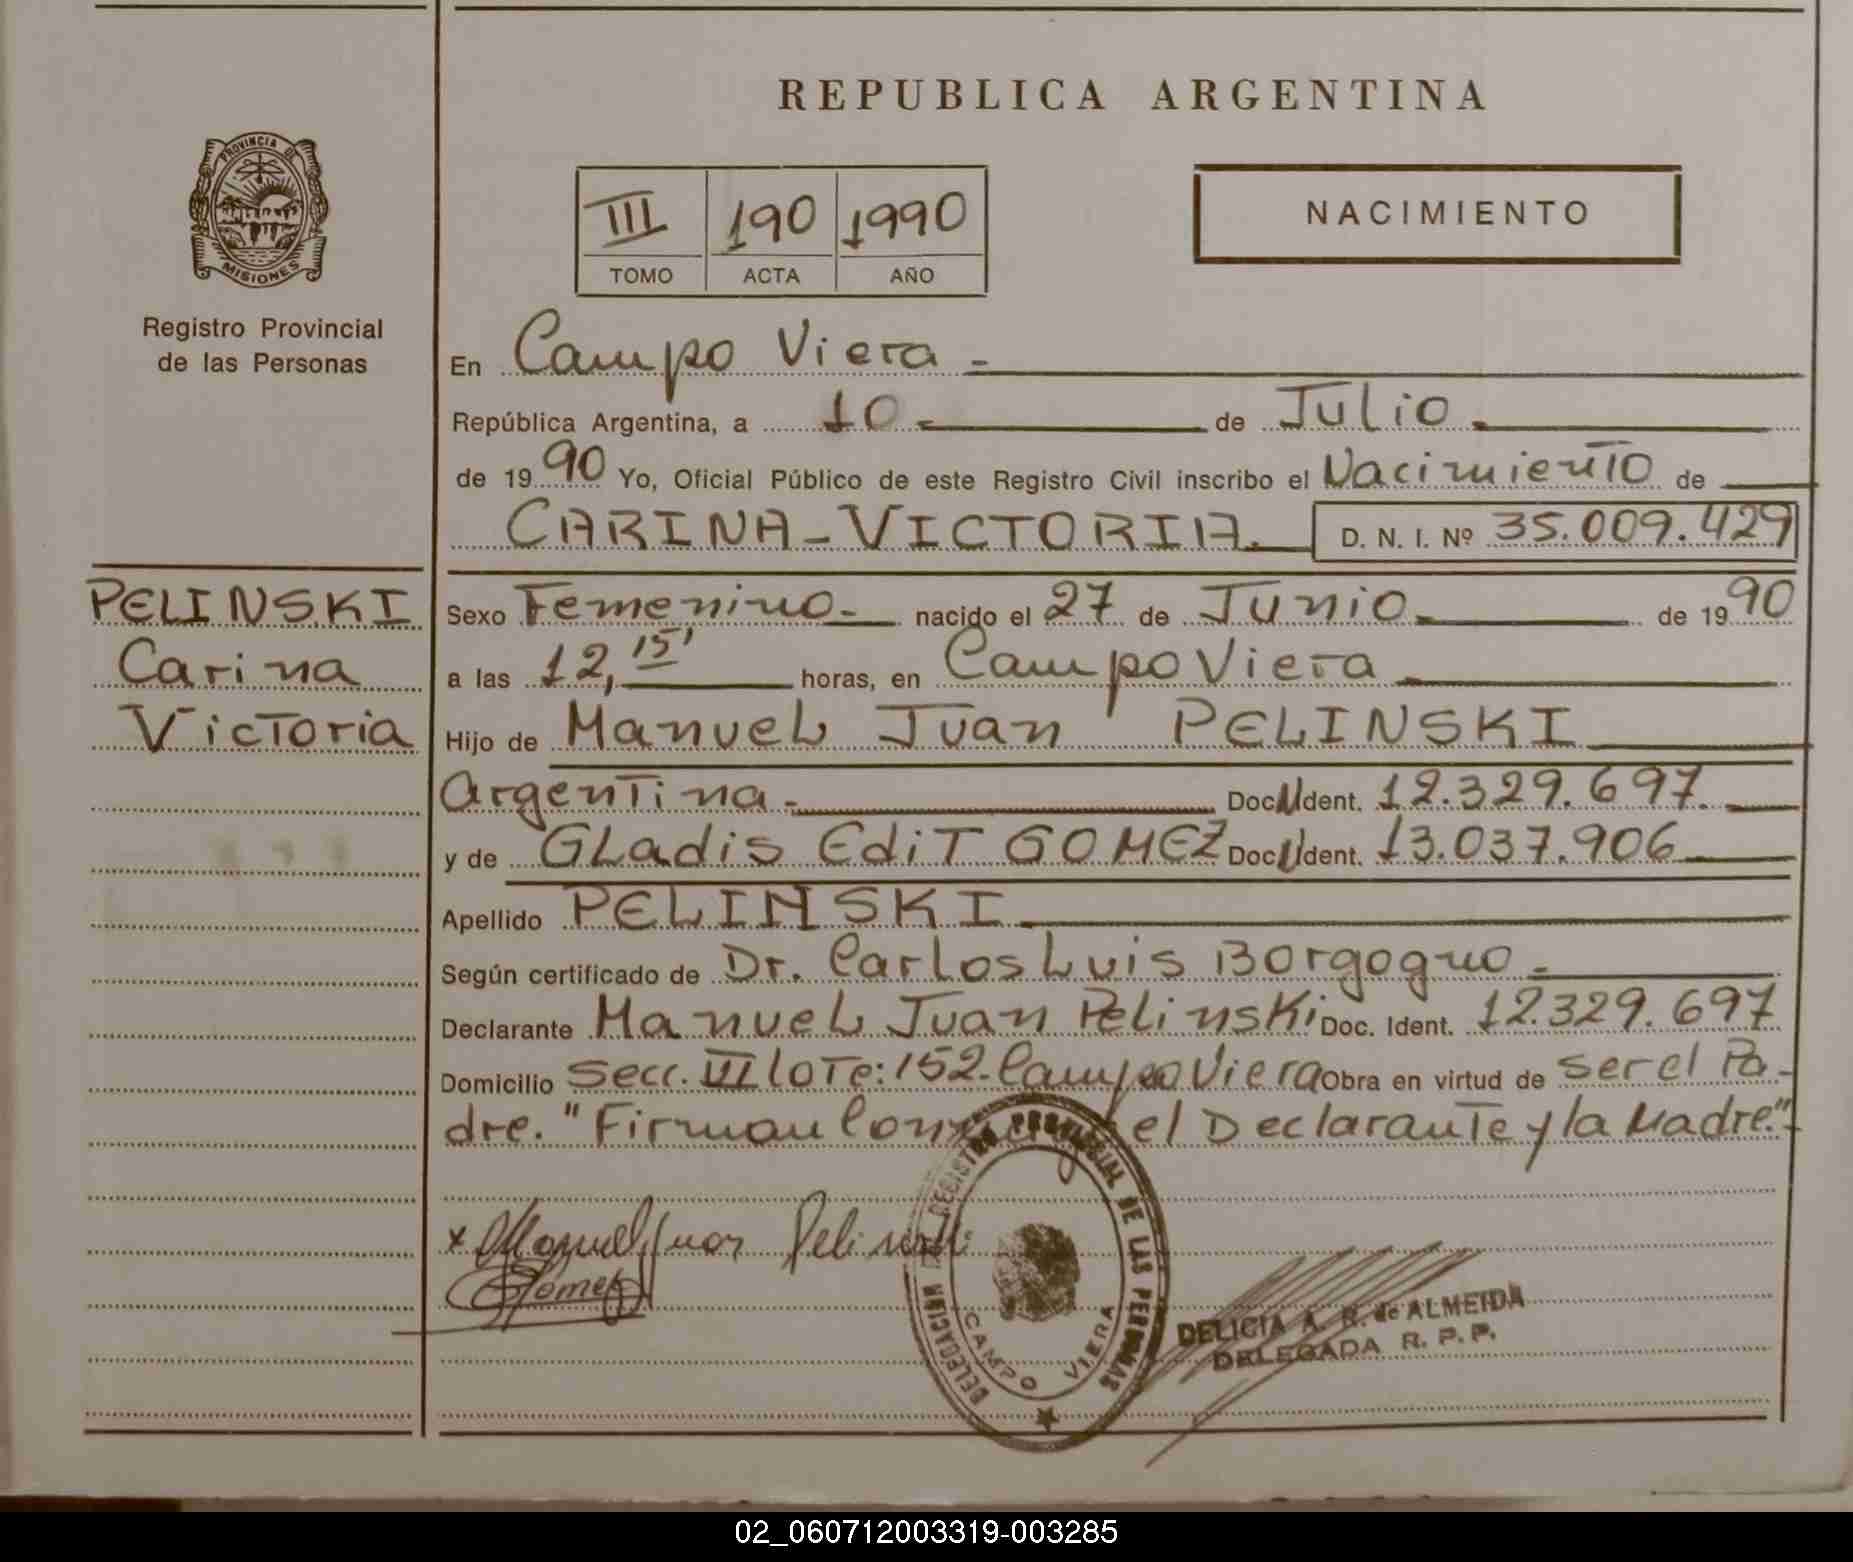 REPUBLICA ARGENTINA
PROVINCIA DE
MISIONES
Registro Provincial
de las Personas
III 190 1990
TOMO ACTA AÑO
NACIMIENTO
En Campo Viera -
República Argentina, a 10 - de Julio -
de 1990 Yo, Oficial Público de este Registro Civil inscribo el Nacimiento de
CARINA-VICTORIA. D. N. I. Nº 35.009.429
PELINSKI
Carina
Victoria
Sexo Femenino - nacido el 27 de Junio - de 1990
a las 12,15' horas, en Campo Viera
Hijo de Manuel Juan PELINSKI
Argentina - Doc. Ident. 12.329.697.
y de Gladis Edit GOMEZ Doc. Ident. 13.037.906
Apellido PELINSKI
Según certificado de Dr. Carlos Luis Borgogno -
Declarante Manuel Juan Pelinski Doc. Ident. 12.329.697
Domicilio Secc. VII Lote: 152. Campo Viera Obra en virtud de ser el Pa-
dre. "Firman Conmigo el Declarante y la Madre."-
x Manuel Juan Pelinski
Gomez
DELEGACION REGISTRO PROVINCIAL DE LAS PERSONAS
CAMPO VIERA
DELICIA A. R. de ALMEIDA
DELEGADA R. P. P.
02_060712003319-003285